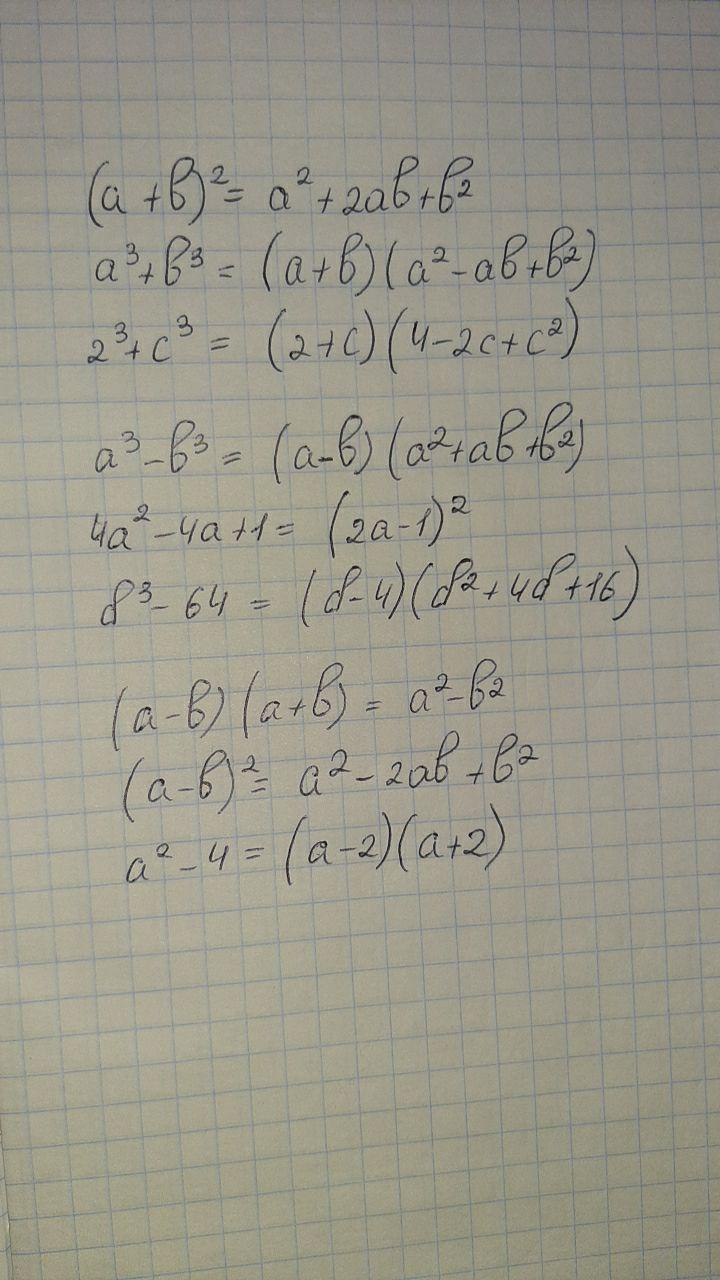 (a+b)²= a²+2ab+b²
a³+b³ = (a+b)(a²-ab+b²)
2³+c³ = (2+c)(4-2c+c²)
a³-b³ = (a-b)(a²+ab+b²)
4a²-4a+1= (2a-1)²
d³-64 = (d-4)(d²+4d+16)
(a-b)(a+b) = a²-b²
(a-b)²= a²-2ab+b²
a²-4=(a-2)(a+2)